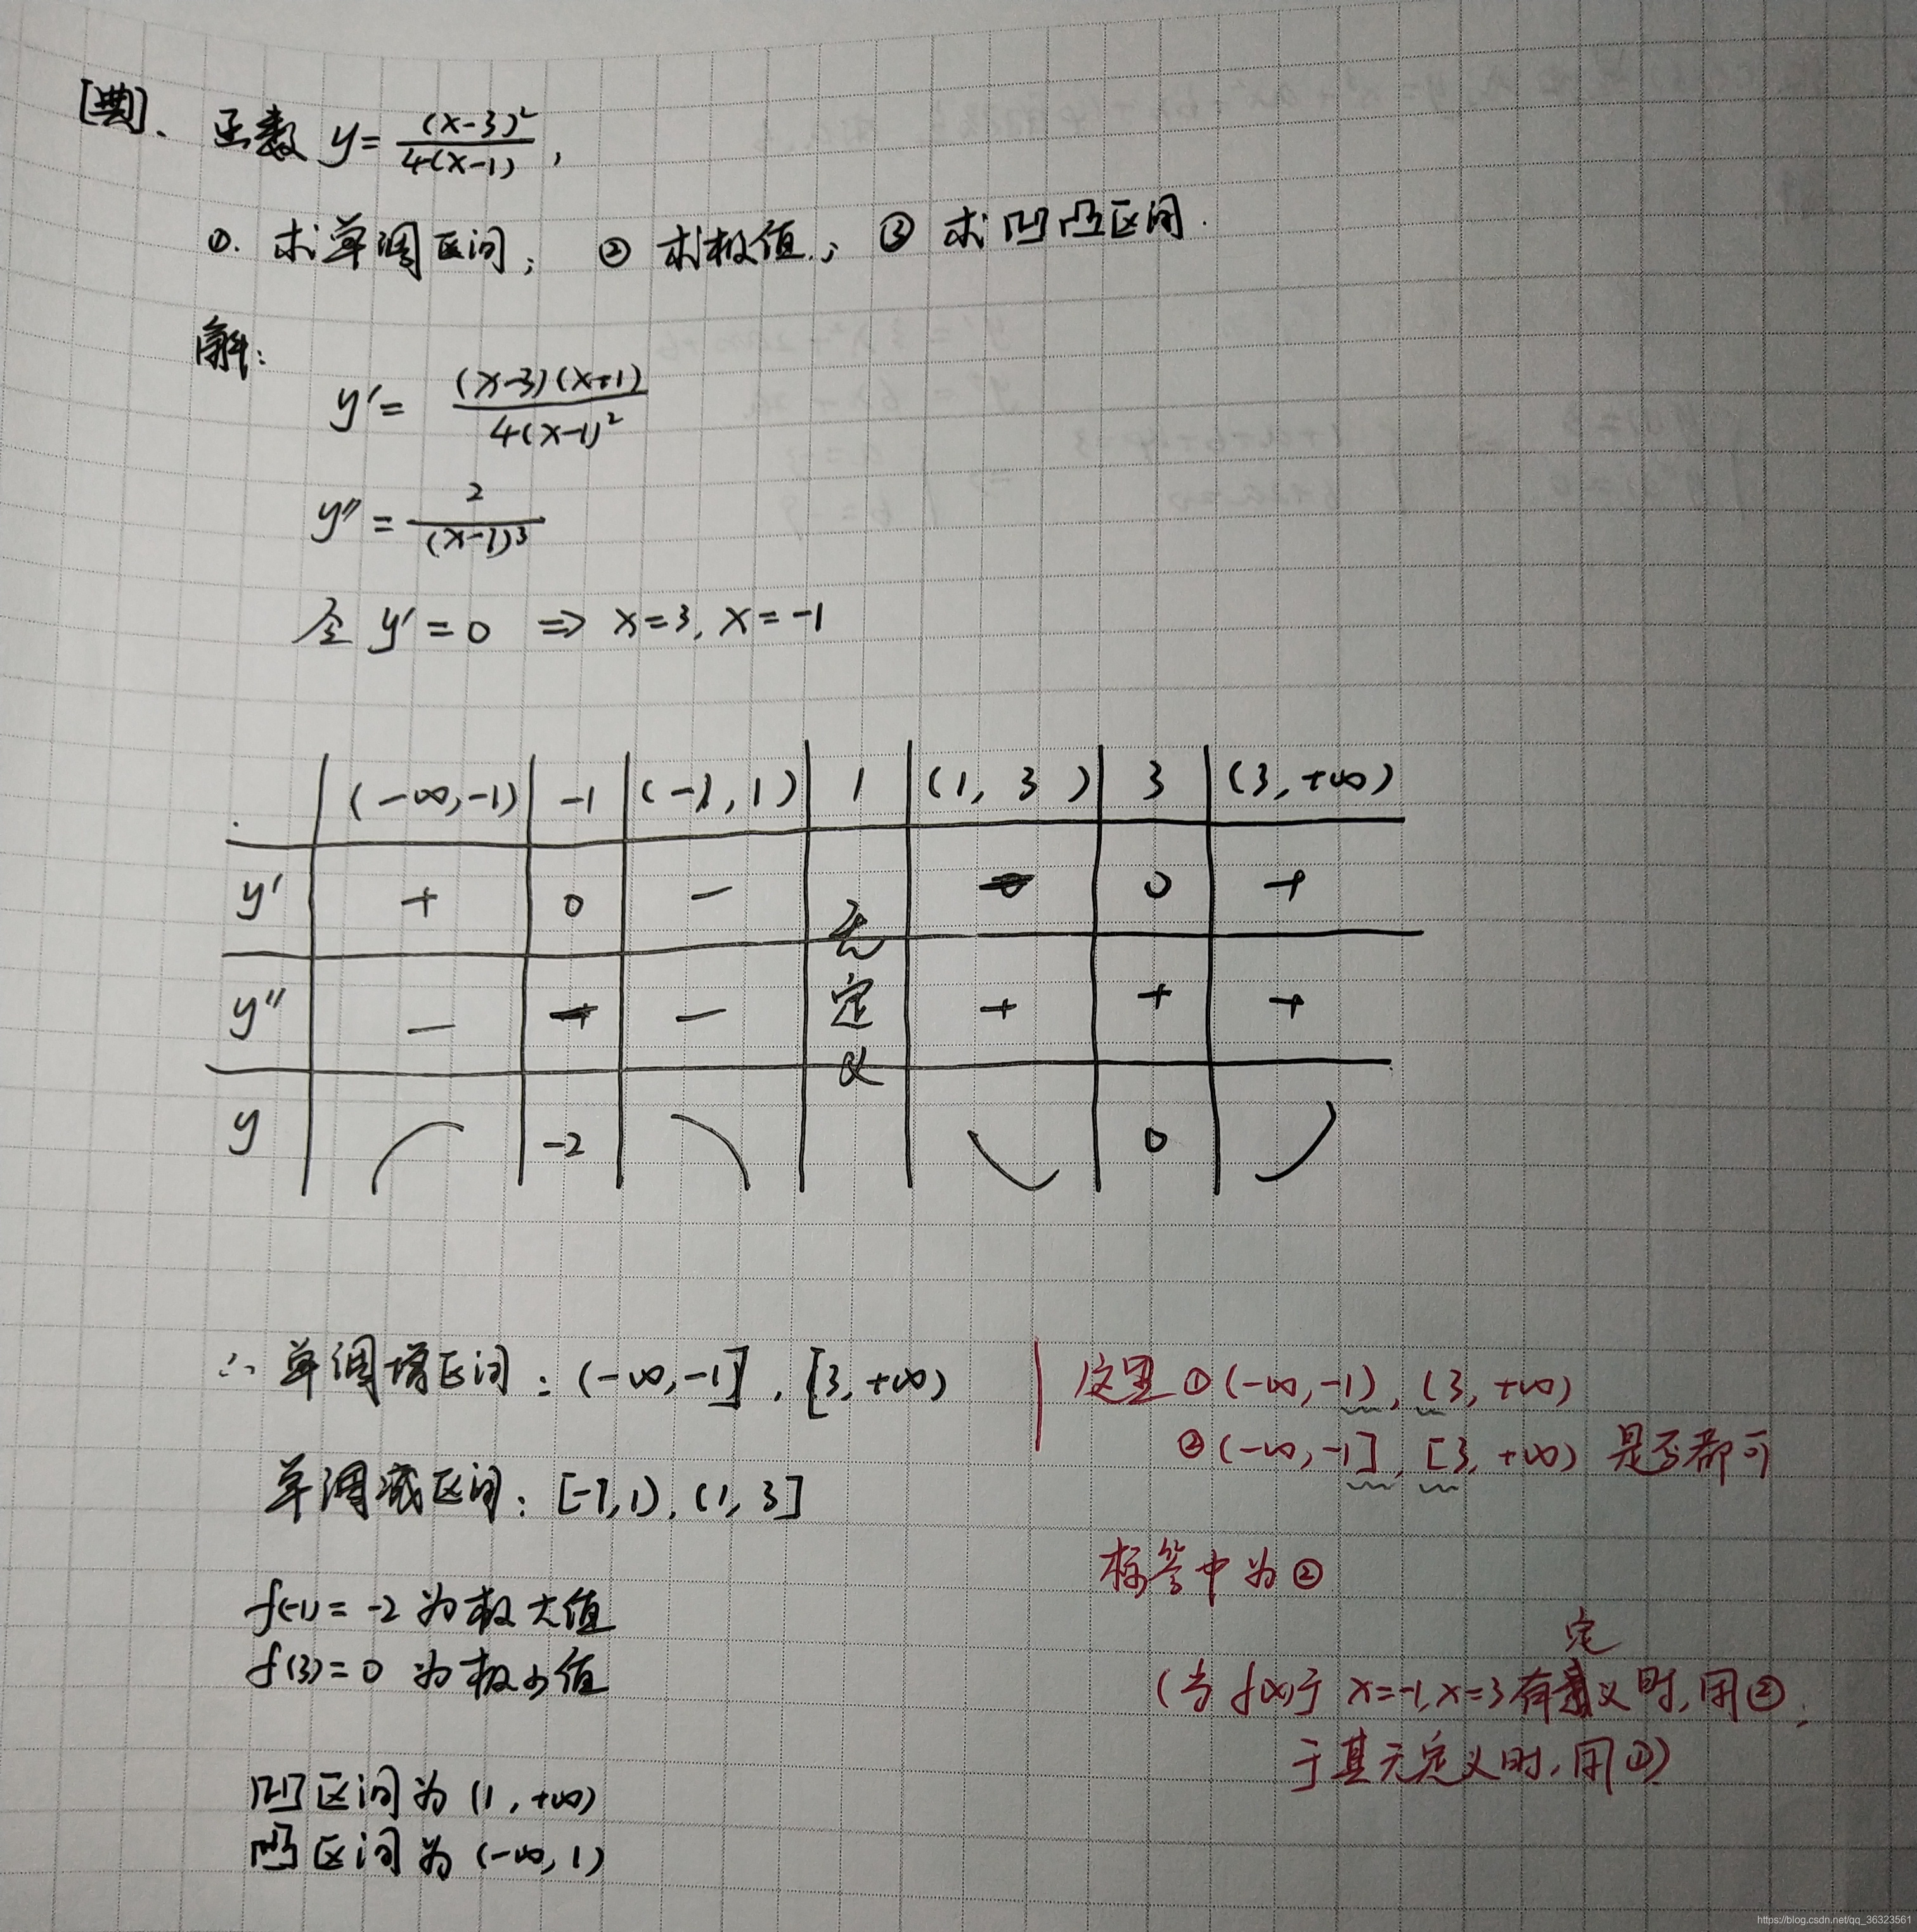 [典]. 函数 y = (x-3)²/4(x-1),
①. 求单调区间; ② 求极值; ③ 求凹凸区间.
解:
y' = (x-3)(x+1)/4(x-1)²
y'' = 2/(x-1)³
令 y' = 0 ⇒ x=3, x=-1
(-∞,-1) -1 (-1,1) 1 (1, 3) 3 (3,+∞)
y' + 0 - 无定义 - 0 +
y'' - - - + + +
y -2 0
∴ 单调增区间: (-∞,-1], [3,+∞)
单调减区间: [-1,1), (1,3]
f(-1) = -2 为极大值
f(3) = 0 为极小值
凹区间为 (1,+∞)
凸区间为 (-∞,1)
这里 ① (-∞,-1), (3,+∞)
② (-∞,-1], [3,+∞) 是否都可
标答中为 ②
(当 f(x)于 x=-1,x=3 有定义时,用②,
于其无定义时,用①)
https://blog.csdn.net/qq_36323561